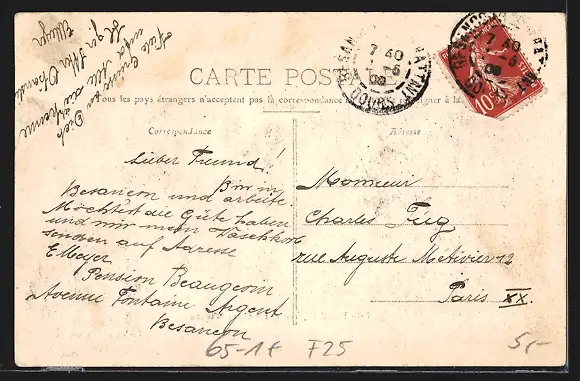 Grüsse an Dich
und Alle die Herren
Viele
Ihr
E Meyer
CARTE POSTALE
Tous les pays étrangers n'acceptent pas la correspondance
Correspondance
Adresse
BESANÇON
DOUBS
7 40
10
Lieber Freund!
Bin in
Besancon und arbeite.
Möchtest die Güte haben
und mir mein Waschkorb
senden auf Adresse
E Meyer
Pension Beaugeom
Avenue Fontaine Argent
Besancon
Monsieur
Charles Fug
rue Auguste Métivier 12
Paris XX.
65-1f F25
5,-